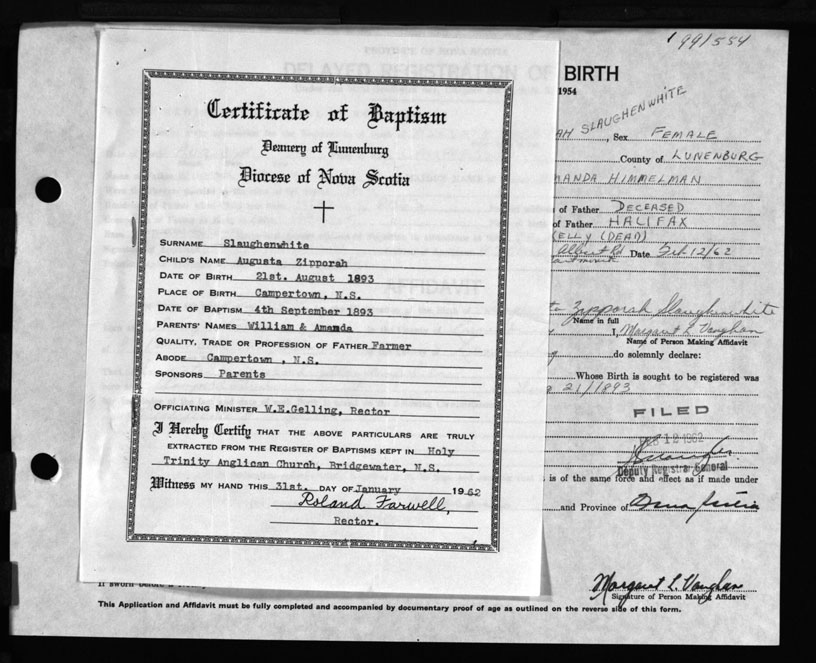 1991554
PROVINCE OF NOVA SCOTIA
DELAYED REGISTRATION OF BIRTH
1954
SLAUGHENWHITE
, Sex FEMALE
County of LUNENBURG
MANDA HIMMELMAN
of Father DECEASED
of Father HALIFAX
ELLY (DEAD)
Date Feb 12/62
AFFIDAVIT
Zipporah Slaughenwhite
Name in full
I, Margaret L. Vaughan
Name of Person Making Affidavit
do solemnly declare:
Whose Birth is sought to be registered was
21/1893
FILED
12 1962
Deputy Registrar General
is of the same force and effect as if made under
and Province of Nova Scotia
Margaret L. Vaughan
Signature of Person Making Affidavit
This Application and Affidavit must be fully completed and accompanied by documentary proof of age as outlined on the reverse side of this form.
Certificate of Baptism
Deanery of Lunenburg
Diocese of Nova Scotia
SURNAME Slaughenwhite
CHILD'S NAME Augusta Zipporah
DATE OF BIRTH 21st. August 1893
PLACE OF BIRTH Campertown, N.S.
DATE OF BAPTISM 4th September 1893
PARENTS' NAMES William & Amanda
QUALITY, TRADE OR PROFESSION OF FATHER Farmer
ABODE Campertown , N.S.
SPONSORS Parents
OFFICIATING MINISTER W.E.Gelling, Rector
I Hereby Certify THAT THE ABOVE PARTICULARS ARE TRULY
EXTRACTED FROM THE REGISTER OF BAPTISMS KEPT IN Holy
Trinity Anglican Church, Bridgewater, N.S.
Witness MY HAND THIS 31st. DAY OF January 1962
Roland Farwell,
Rector.